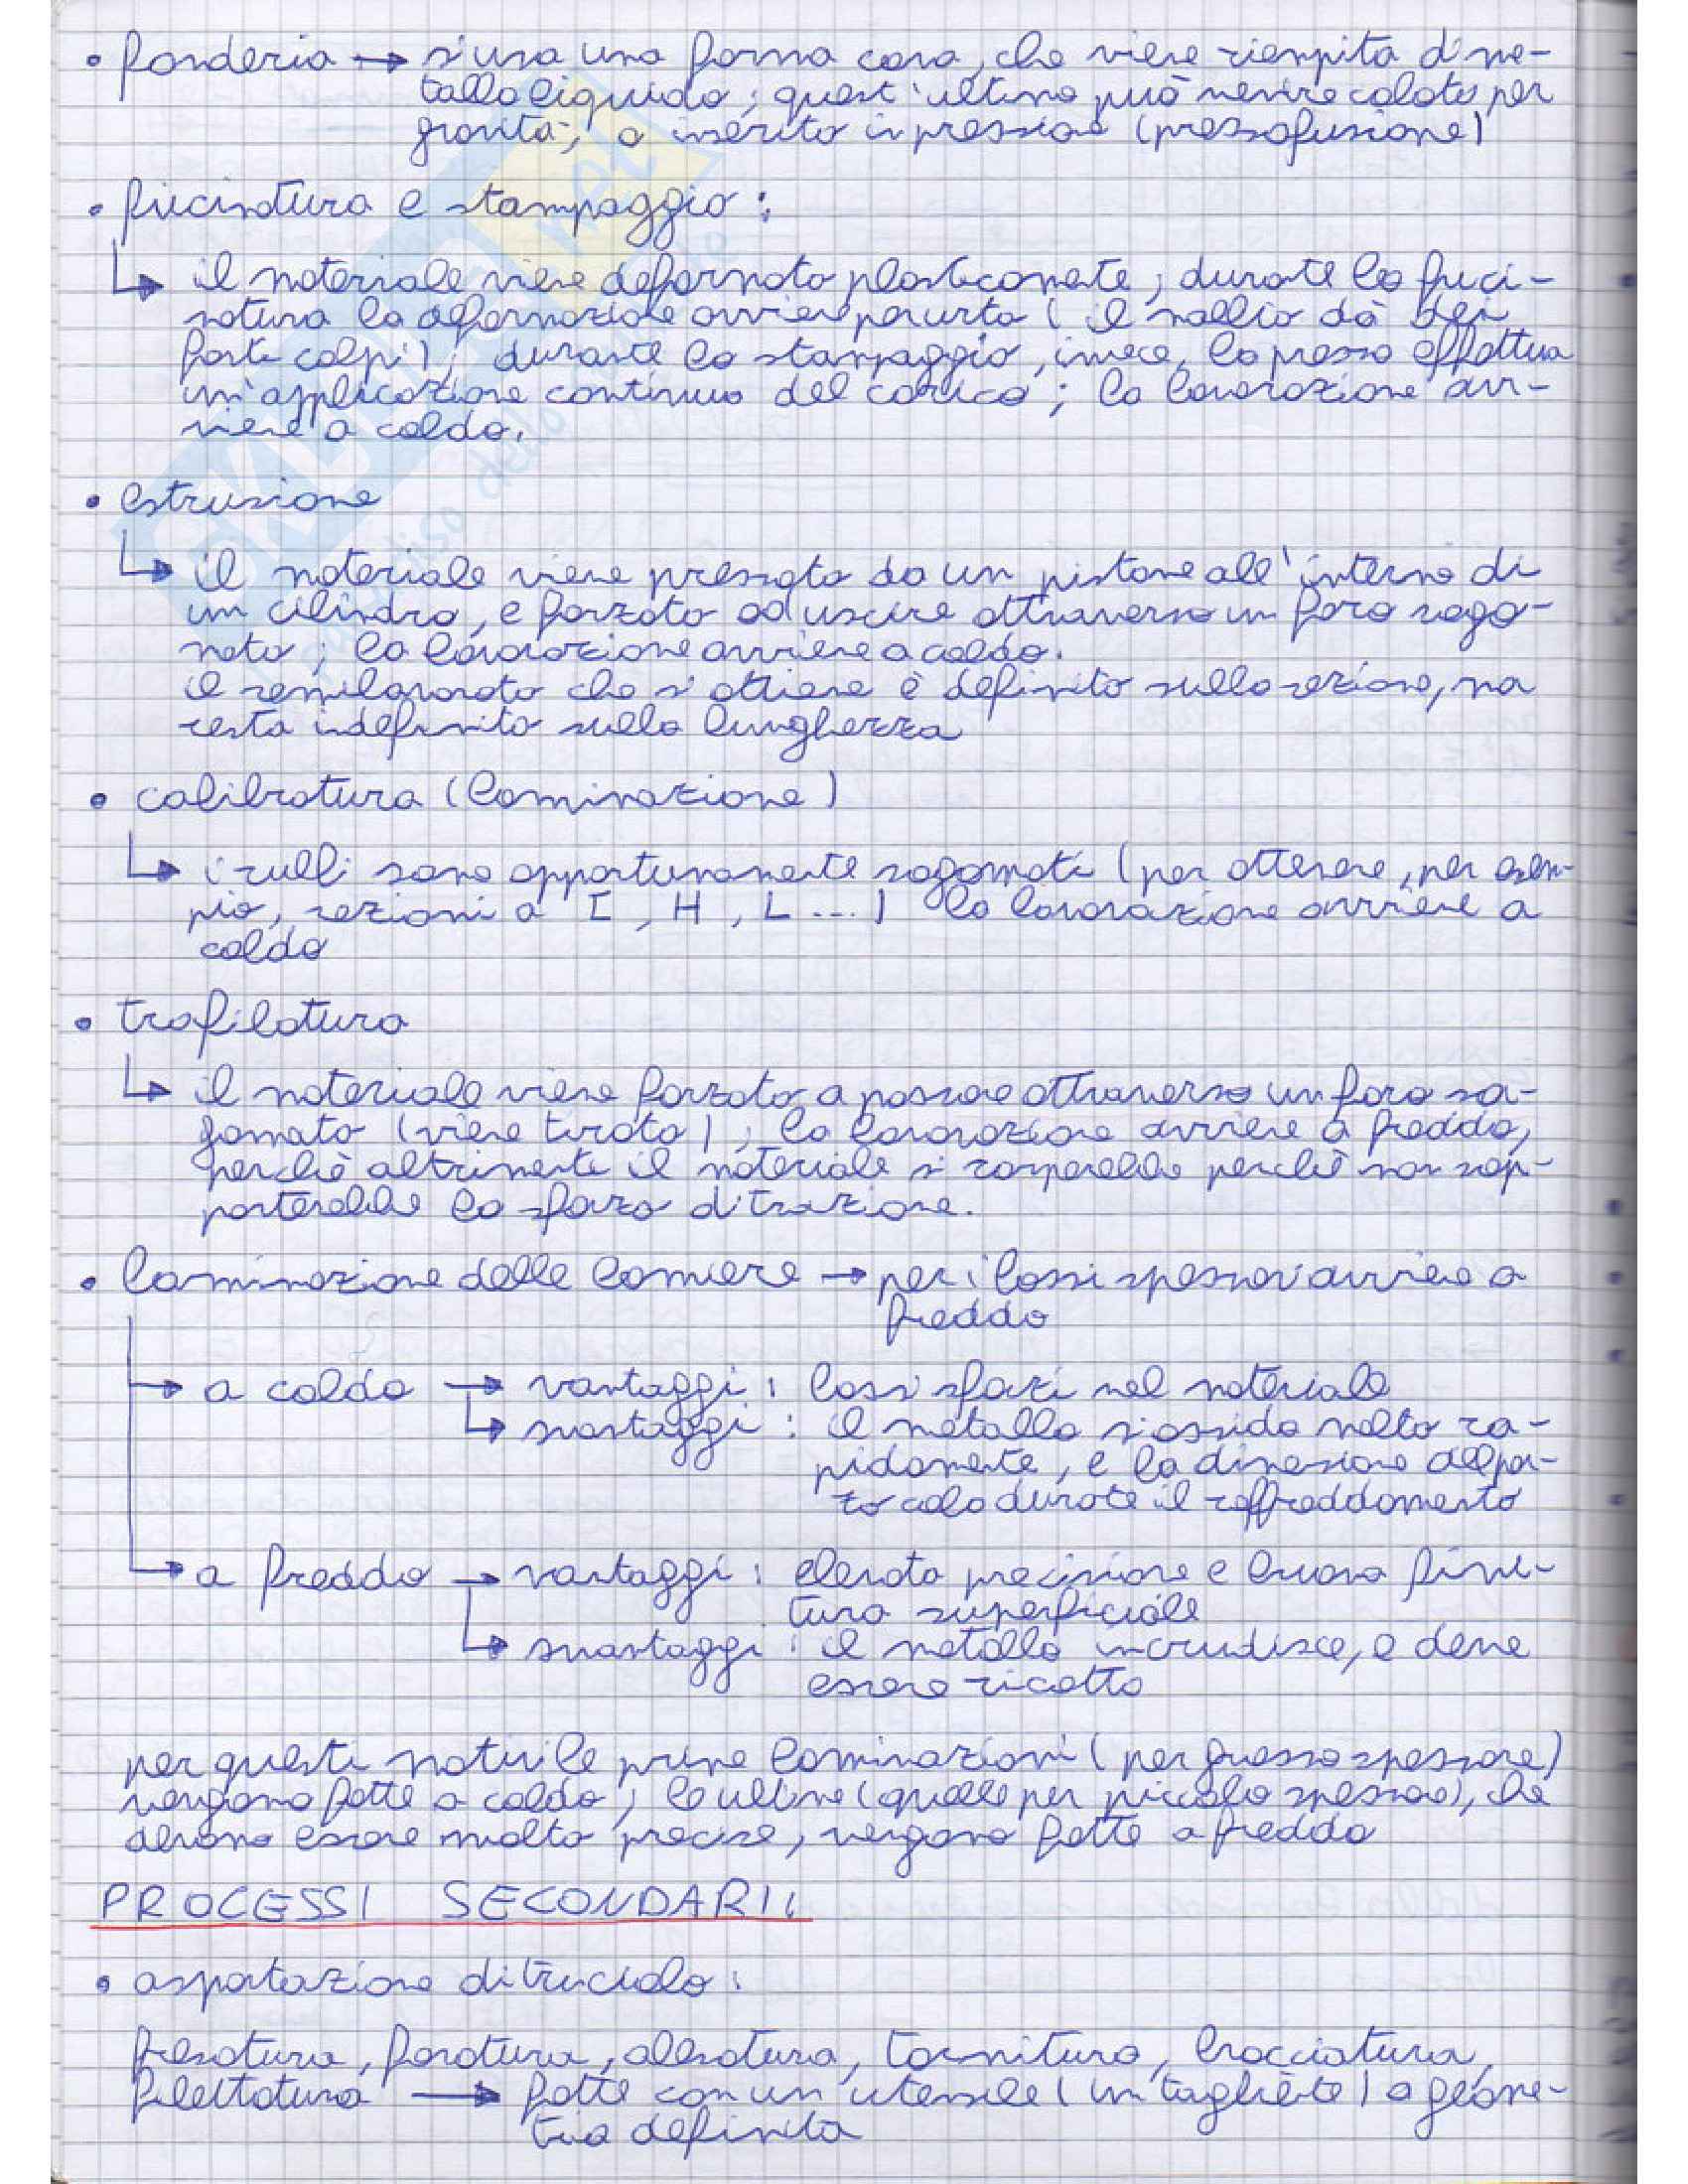 • fonderia → s'usa una forma cava, che viene riempita di me-
tallo liquido; quest'ultimo può venire colato per
gravità, o inserito in pressione (pressofusione)
• fucinatura e stampaggio:
↳ il materiale viene deformato plasticamente; durante la fuci-
natura la deformazione avviene per urto (il maglio dà dei
forti colpi); durante lo stampaggio, invece, la pressa effettua
un'applicazione continua del carico; la lavorazione av-
viene a caldo.
• estrusione
↳ il materiale viene pressato da un pistone all'interno di
un cilindro, e forzato ad uscire attraverso un foro sago-
mato; la lavorazione avviene a caldo.
il semilavorato che s'ottiene è definito sulla sezione, ma
resta indefinito sulla lunghezza
• calibratura (laminazione)
↳ i rulli sono opportunamente sagomati (per ottenere, per esem-
pio, sezioni a I, H, L ...) la lavorazione avviene a
caldo
• trafilatura
↳ il materiale viene forzato a passare attraverso un foro sa-
gomato (viene tirato); la lavorazione avviene a freddo,
perchè altrimenti il materiale si romperebbe perchè non sop-
porterebbe lo sforzo di trazione.
• laminazione delle lamiere → per i bassi spessori avviene a
freddo
→ a caldo → vantaggi: bassi sforzi nel materiale
↳ svantaggi: il metallo s'ossida molto ra-
pidamente, e la dimensione del pez-
zo cala durante il raffreddamento
→ a freddo → vantaggi: elevata precisione e buona fini-
tura superficiale
↳ svantaggi: il metallo incrudisce, e deve
essere ricotto
per questi motivi le prime laminazioni (per grosso spessore)
vengono fatte a caldo; le ultime (quelle per piccolo spessore), che
devono essere molto precise, vengono fatte a freddo
PROCESSI SECONDARI:
• asportazione di truciolo:
fresatura, foratura, alesatura, tornitura, brocciatura,
filettatura → fatte con un utensile (un tagliente) a geome-
tria definita